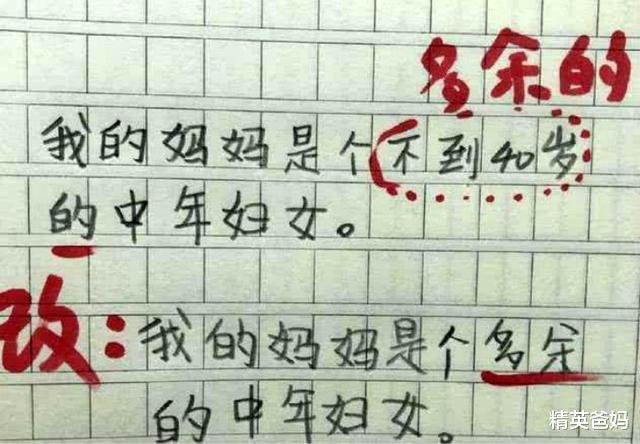 多余的
我的妈妈是个不到40岁
的中年妇女。
改：我的妈妈是个多余
的中年妇女。
精英爸妈